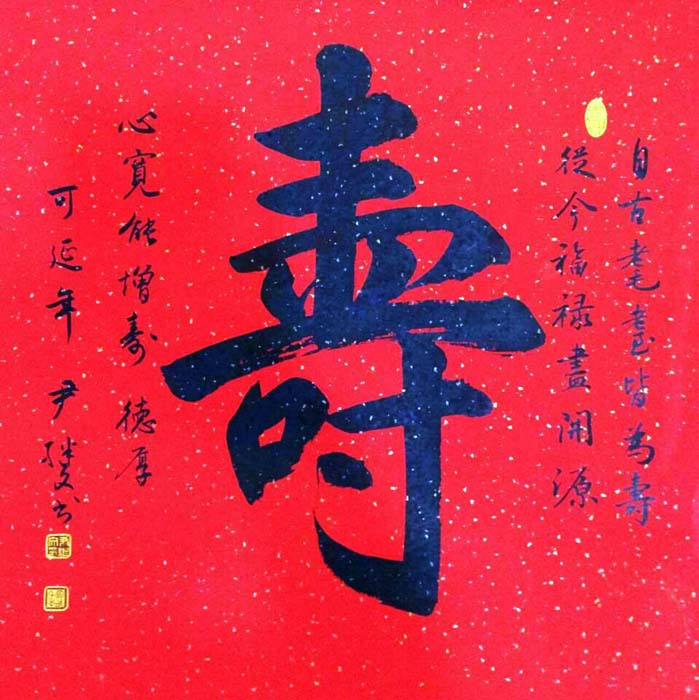 自古耄耋皆為壽
從今福禄盡開源
壽
心寬能增寿 德厚
可延年 尹繼文书